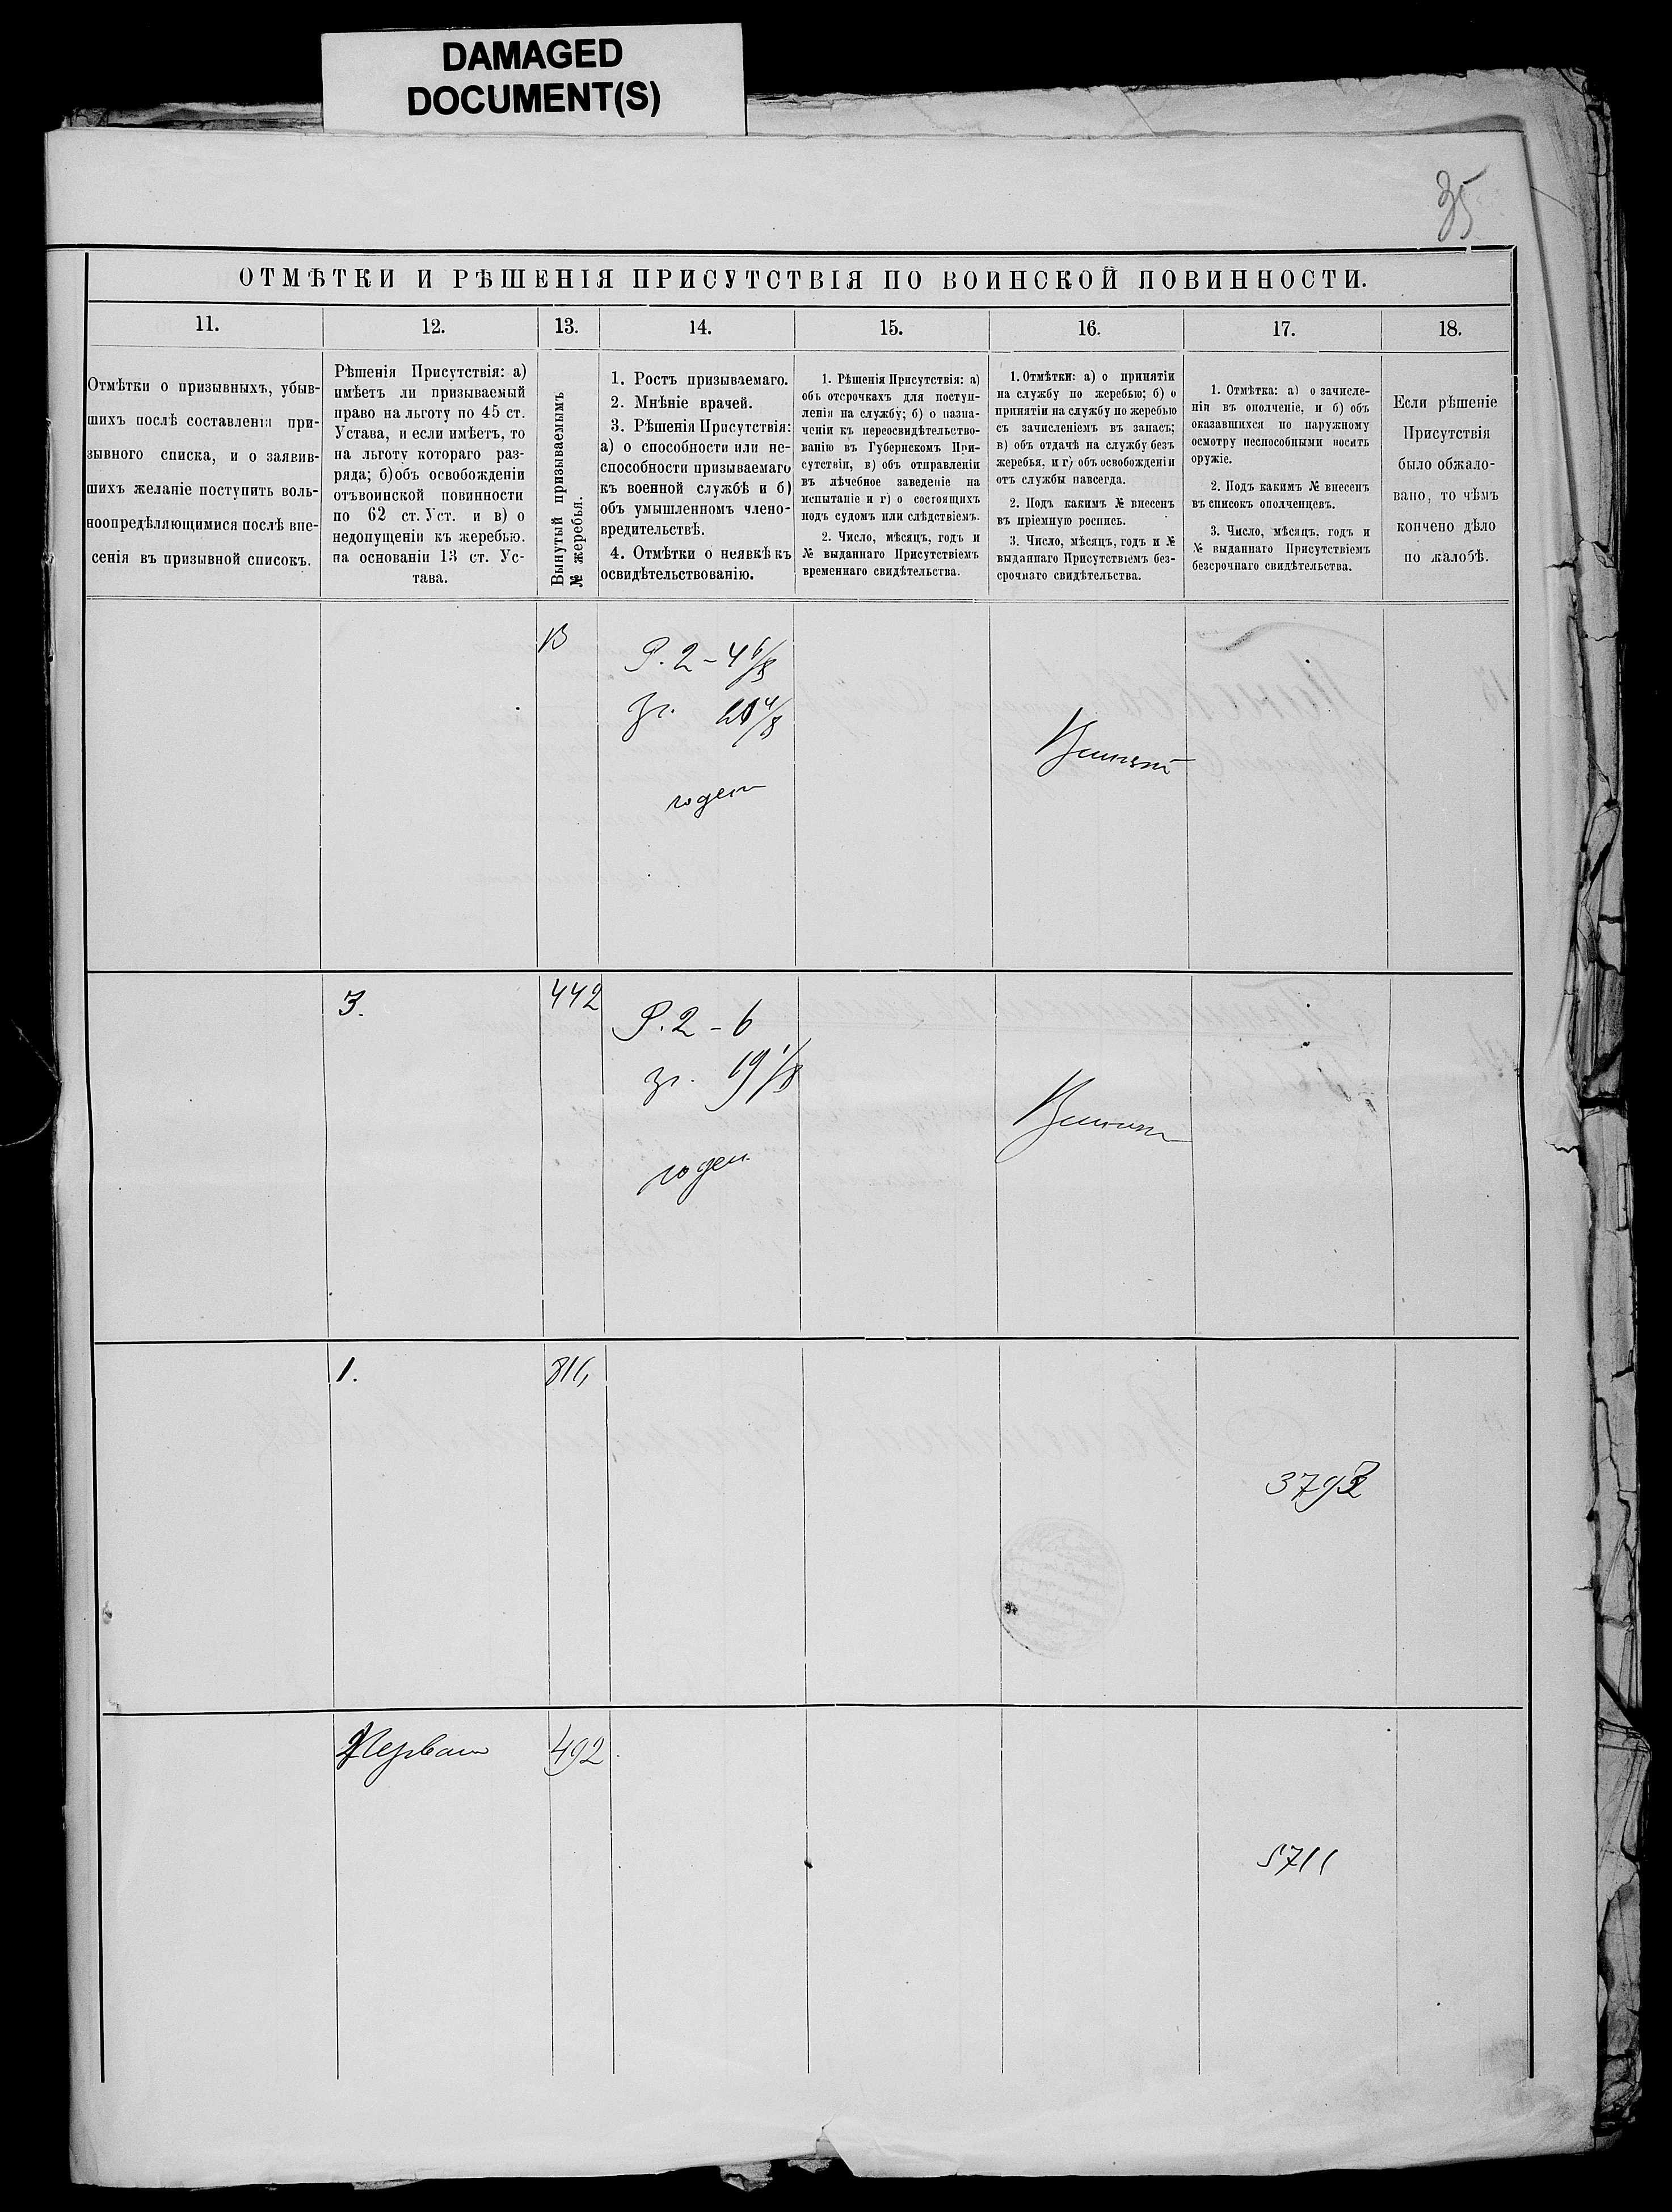 DAMAGED
DOCUMENT(S)
35
ОТМѢТКИ И РѢШЕНІЯ ПРИСУТСТВІЯ ПО ВОИНСКОЙ ПОВИННОСТИ.
11.
12.
13.
14.
15.
16.
17.
18.
Отмѣтки о призывныхъ, убыв-
шихъ послѣ составленія при-
зывного списка, и о заявив-
шихъ желаніе поступить воль-
ноопредѣляющимися послѣ вне-
сенія въ призывной списокъ.
Рѣшенія Присутствія: а)
имѣетъ ли призываемый
право на льготу по 45 ст.
Устава, и если имѣетъ, то
на льготу котораго раз-
ряда; б) объ освобожденіи
отъ воинской повинности
по 62 ст. Уст. и в) о
недопущеніи къ жеребью.
на основаніи 13 ст. Ус-
тава.
Вынутый призываемымъ
№ жеребья.
1. Ростъ призываемаго.
2. Мнѣніе врачей.
3. Рѣшенія Присутствія:
а) о способности или не-
способности призываемаго
къ военной службѣ и б)
объ умышленномъ члено-
вредительствѣ.
4. Отмѣтки о неявкѣ къ
освидѣтельствованію.
1. Рѣшенія Присутствія: а)
объ отсрочкахъ для поступ-
ленія на службу; б) о назна-
ченіи къ переосвидѣтельство-
ванію въ Губернскомъ При-
сутствіи, в) объ отправленіи
въ лѣчебное заведеніе на
испытаніе и г) о состоящихъ
подъ судомъ или слѣдствіемъ.
2. Число, мѣсяцъ, годъ и
№ выданнаго Присутствіемъ
временнаго свидѣтельства.
1. Отмѣтки: а) о принятіи
на службу по жеребью; б) о
принятіи на службу по жеребью
съ зачисленіемъ въ запасъ;
в) объ отдачѣ на службу безъ
жеребья, и г) объ освобожденіи
отъ службы навсегда.
2. Подъ какимъ № внесенъ
въ пріемную роспись.
3. Число, мѣсяцъ, годъ и №
выданнаго Присутствіемъ без-
срочнаго свидѣтельства.
1. Отмѣтка: а) о зачисле-
ніи въ ополченіе, и б) объ
оказавшихся по наружному
осмотру неспособными носить
оружіе.
2. Подъ какимъ № внесенъ
въ списокъ ополченцевъ.
3. Число, мѣсяцъ, годъ и
№ выданнаго Присутствіемъ
безсрочнаго свидѣтельства.
Если рѣшеніе
Присутствія
было обжало-
вано, то чѣмъ
кончено дѣло
по жалобѣ.
Р. 2 - 4 6/8
зг. 4/8
годен
3.
442
Р. 2 - 6
зг. 19 1/8
годен
1.
3792
Первая
492
5711